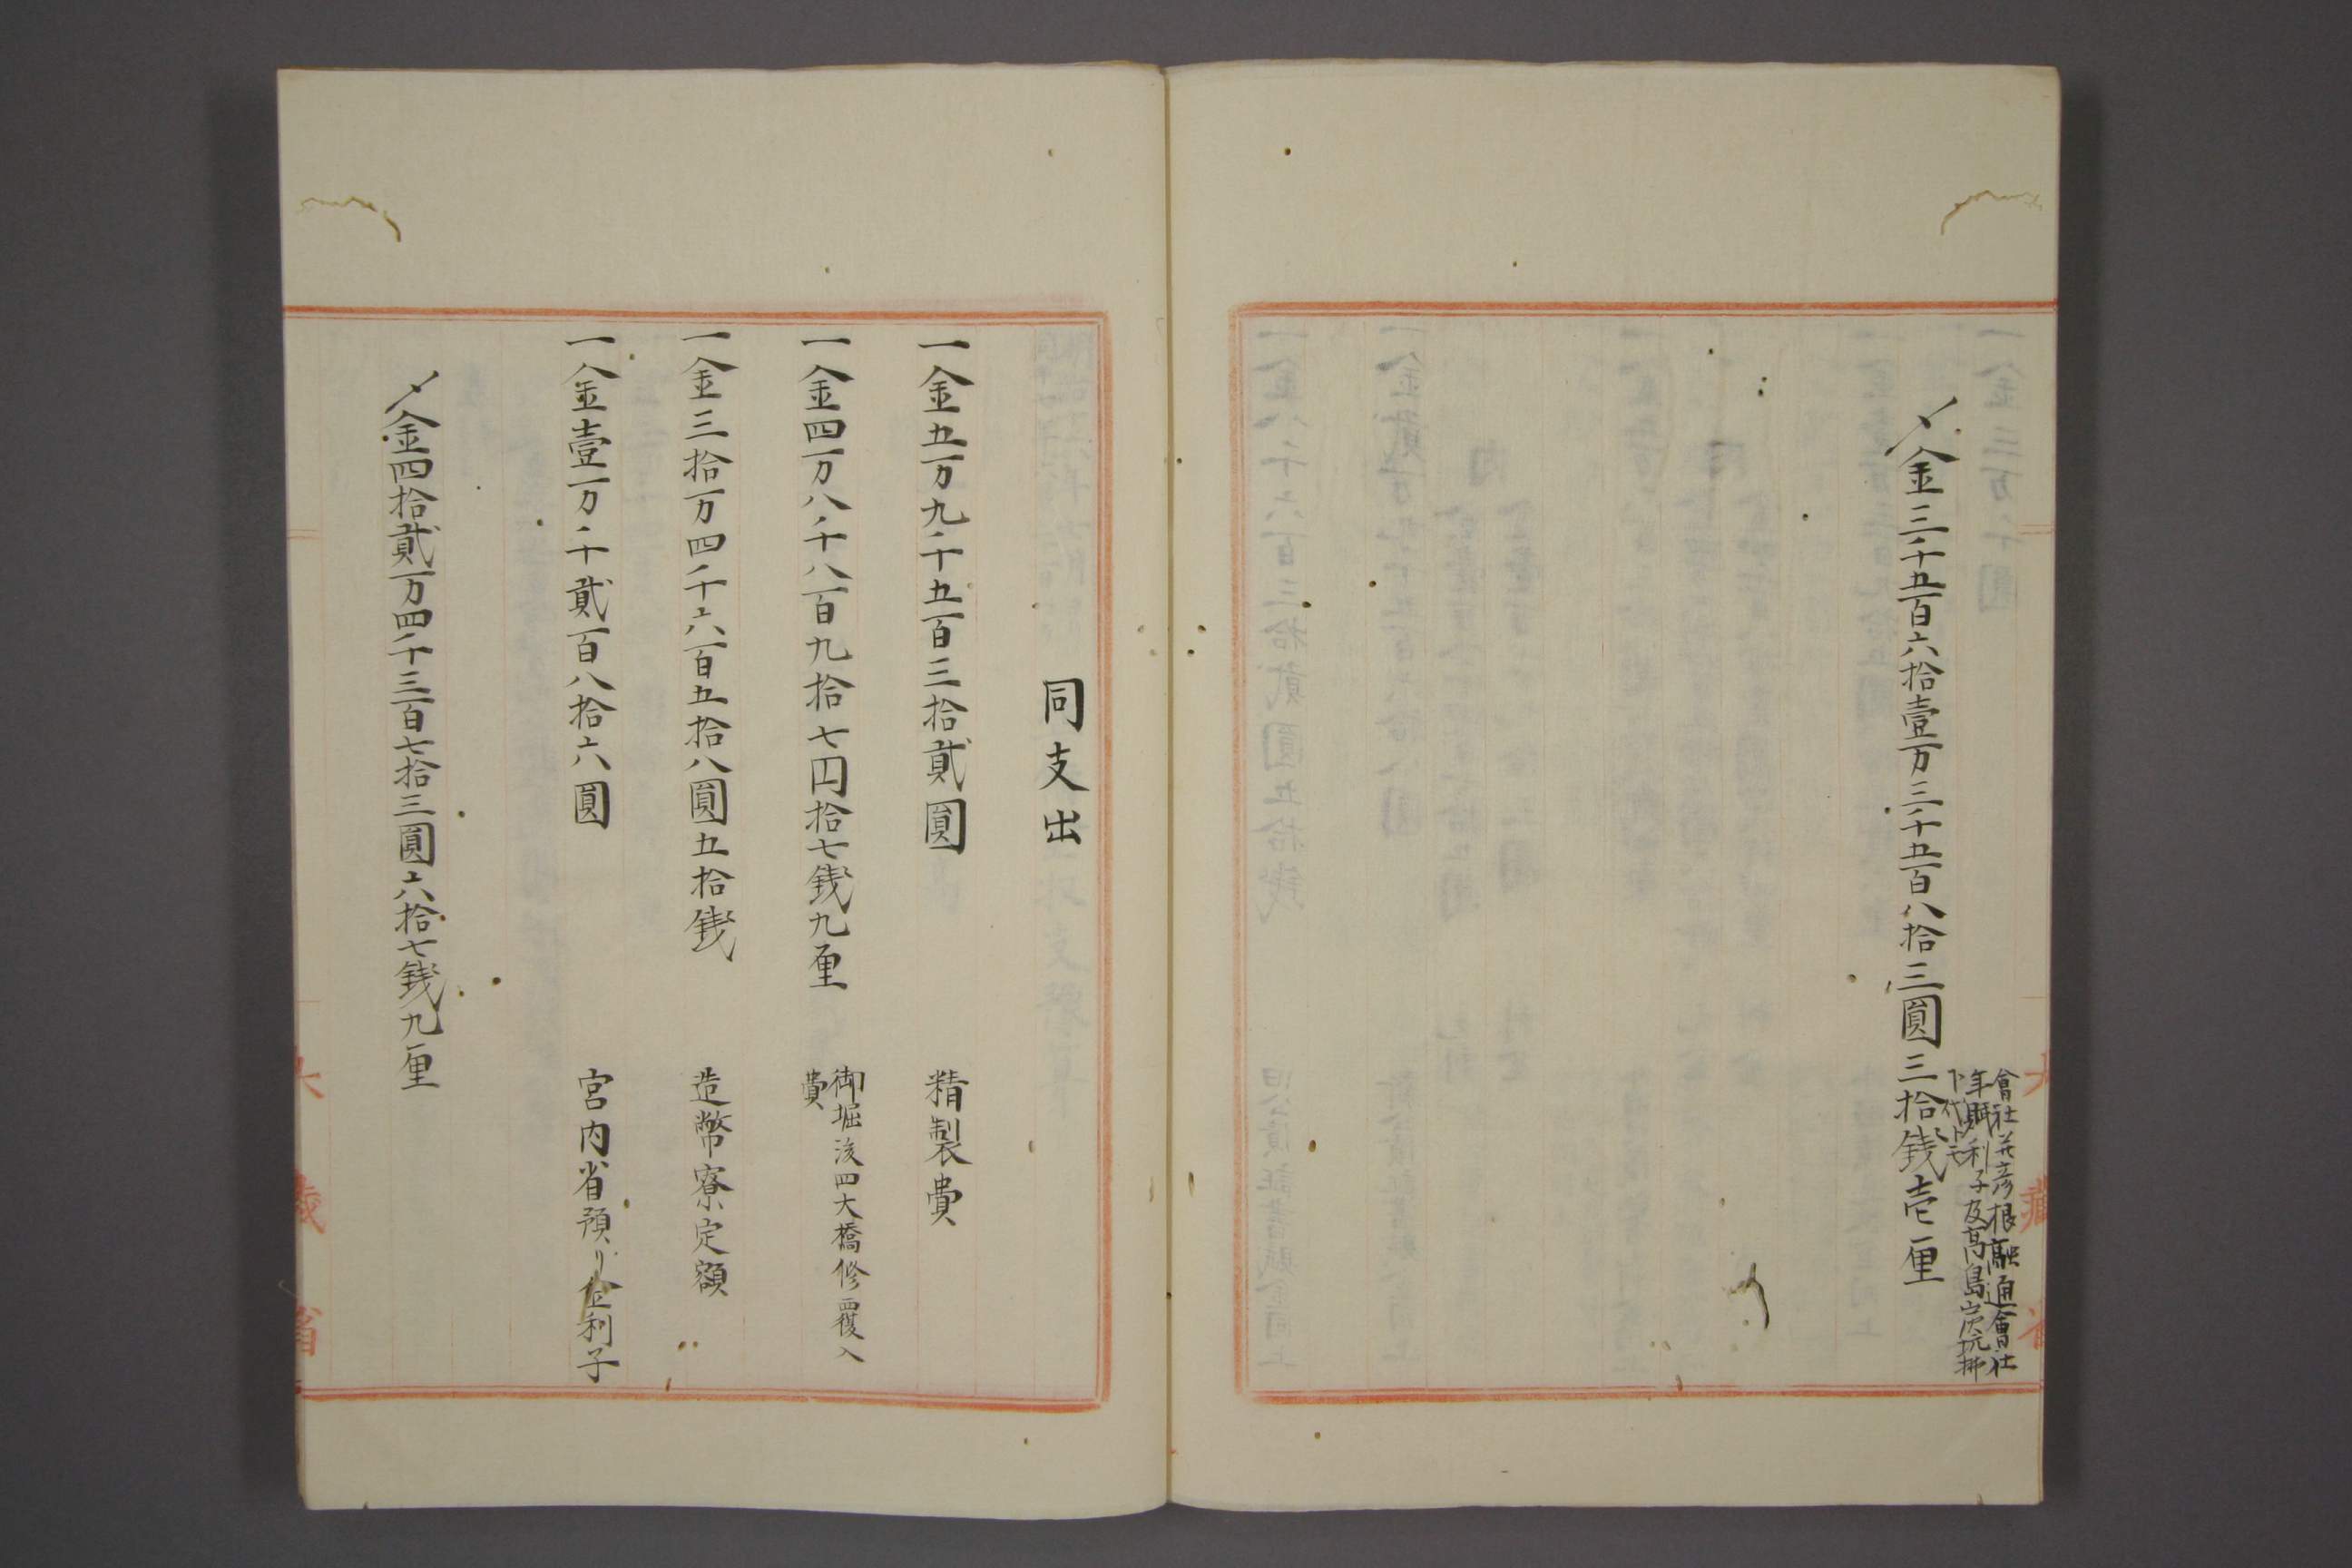 會社并彦根融通會社
年賦利子及高島炭坑拂
下代トモ
〆金三千五百六拾壹万三千五百八拾三圓三拾銭壱厘
同支出
一金五万九千五百三拾貳圓 精製費
一金四万八千八百九拾七円拾七銭九厘 御堀浚四大橋修覆入
費
一金三拾万四千六百五拾八圓五拾銭 造幣寮定額
一金壹万千貳百八拾六圓 宮内省預リ金利子
〆金四拾貳万四千三百七拾三圓六拾七銭九厘
大藏省